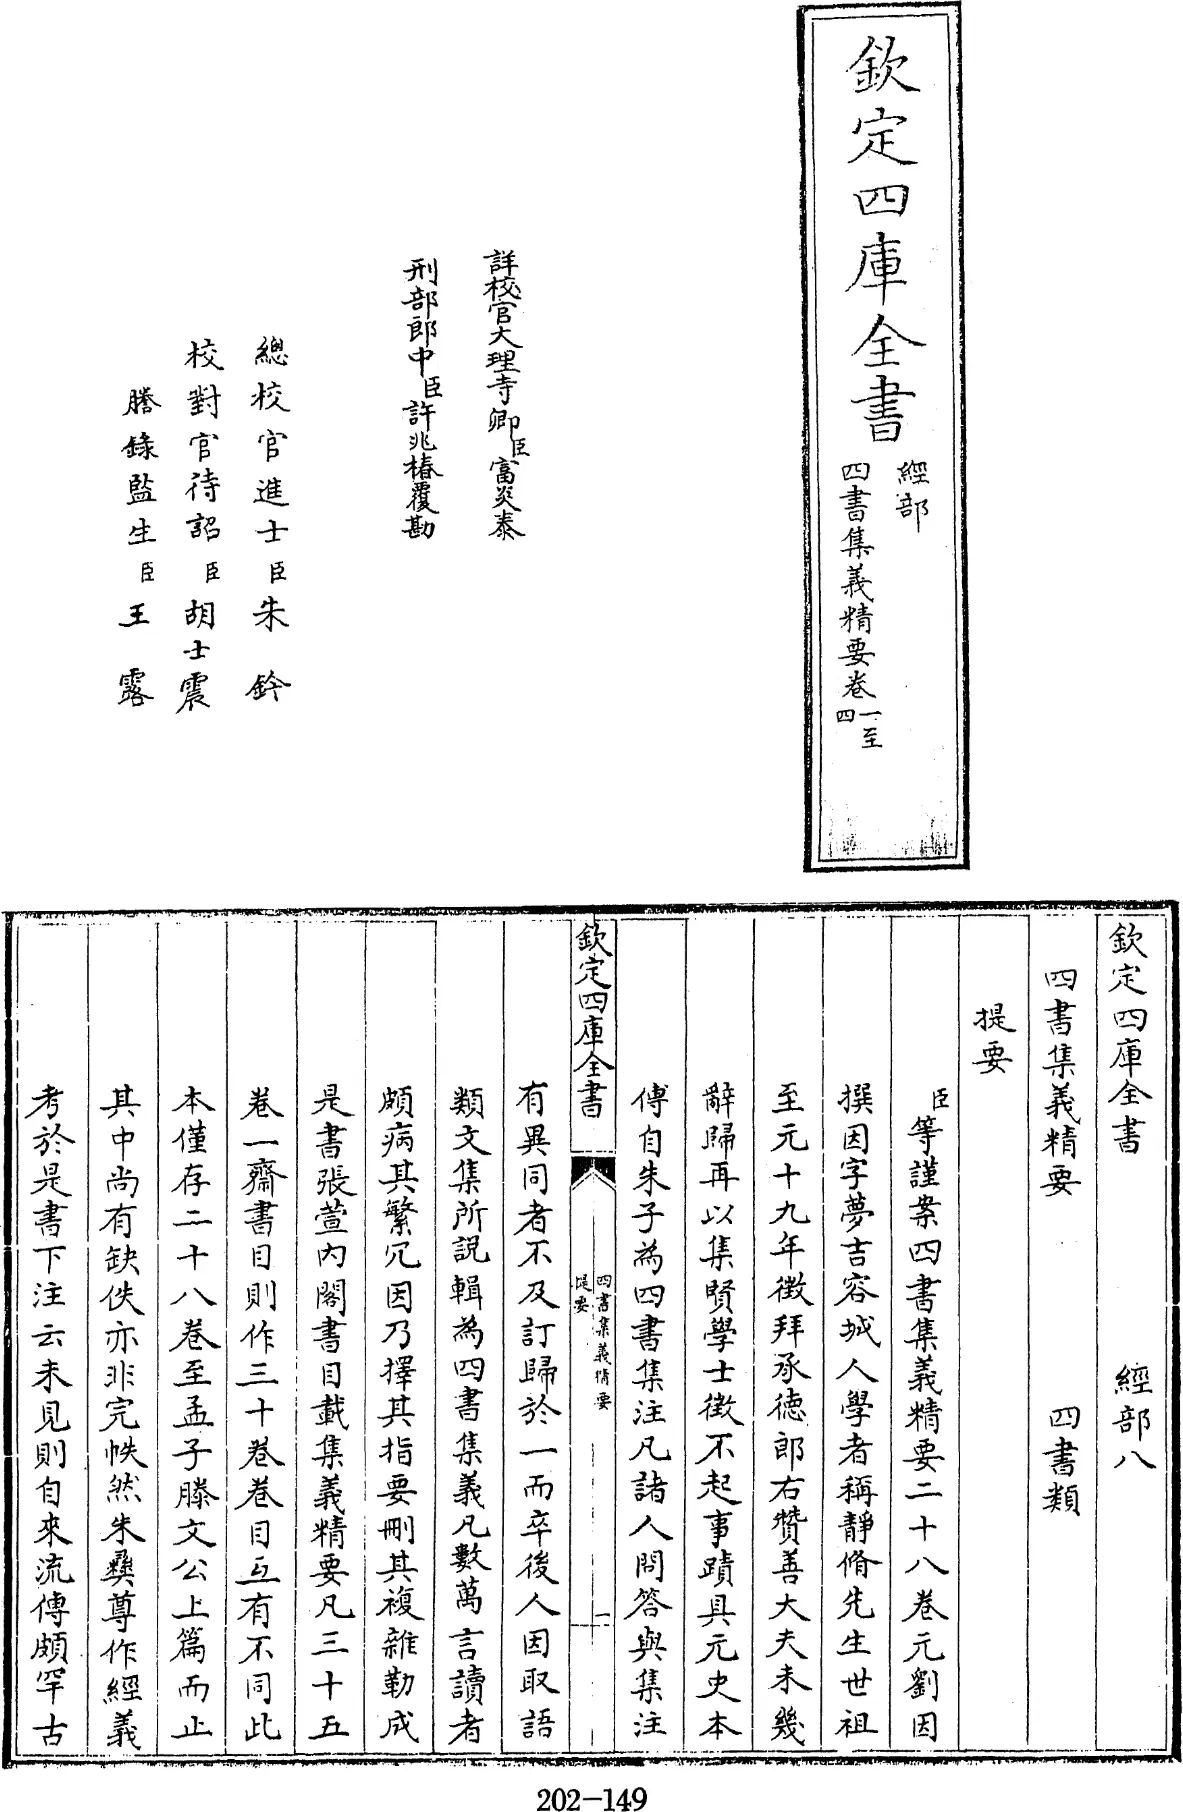 欽定四庫全書
經部
四書集義精要卷一至四
詳校官大理寺卿臣富炎泰
刑部郎中臣許兆椿覆勘
總校官進士臣朱鈐
校對官待詔臣胡士震
謄錄監生臣王露
欽定四庫全書 經部八
四書集義精要 四書類
提要
臣等謹案四書集義精要二十八卷元劉因
撰因字夢吉容城人學者稱靜脩先生世祖
至元十九年徵拜承德郎右贊善大夫未幾
辭歸再以集賢學士徵不起事蹟具元史本
傳自朱子為四書集注凡諸人問答與集注
欽定四庫全書
四書集義精要
提要
一
有異同者不及訂歸於一而卒後人因取語
類文集所說輯為四書集義凡數萬言讀者
頗病其繁冗因乃擇其指要刪其複雜勒成
是書張萱內閣書目載集義精要凡三十五
卷一齋書目則作三十卷卷目互有不同此
本僅存二十八卷至孟子滕文公上篇而止
其中尚有缺佚亦非完帙然朱彝尊作經義
考於是書下注云未見則自來流傳頗罕古
202-149